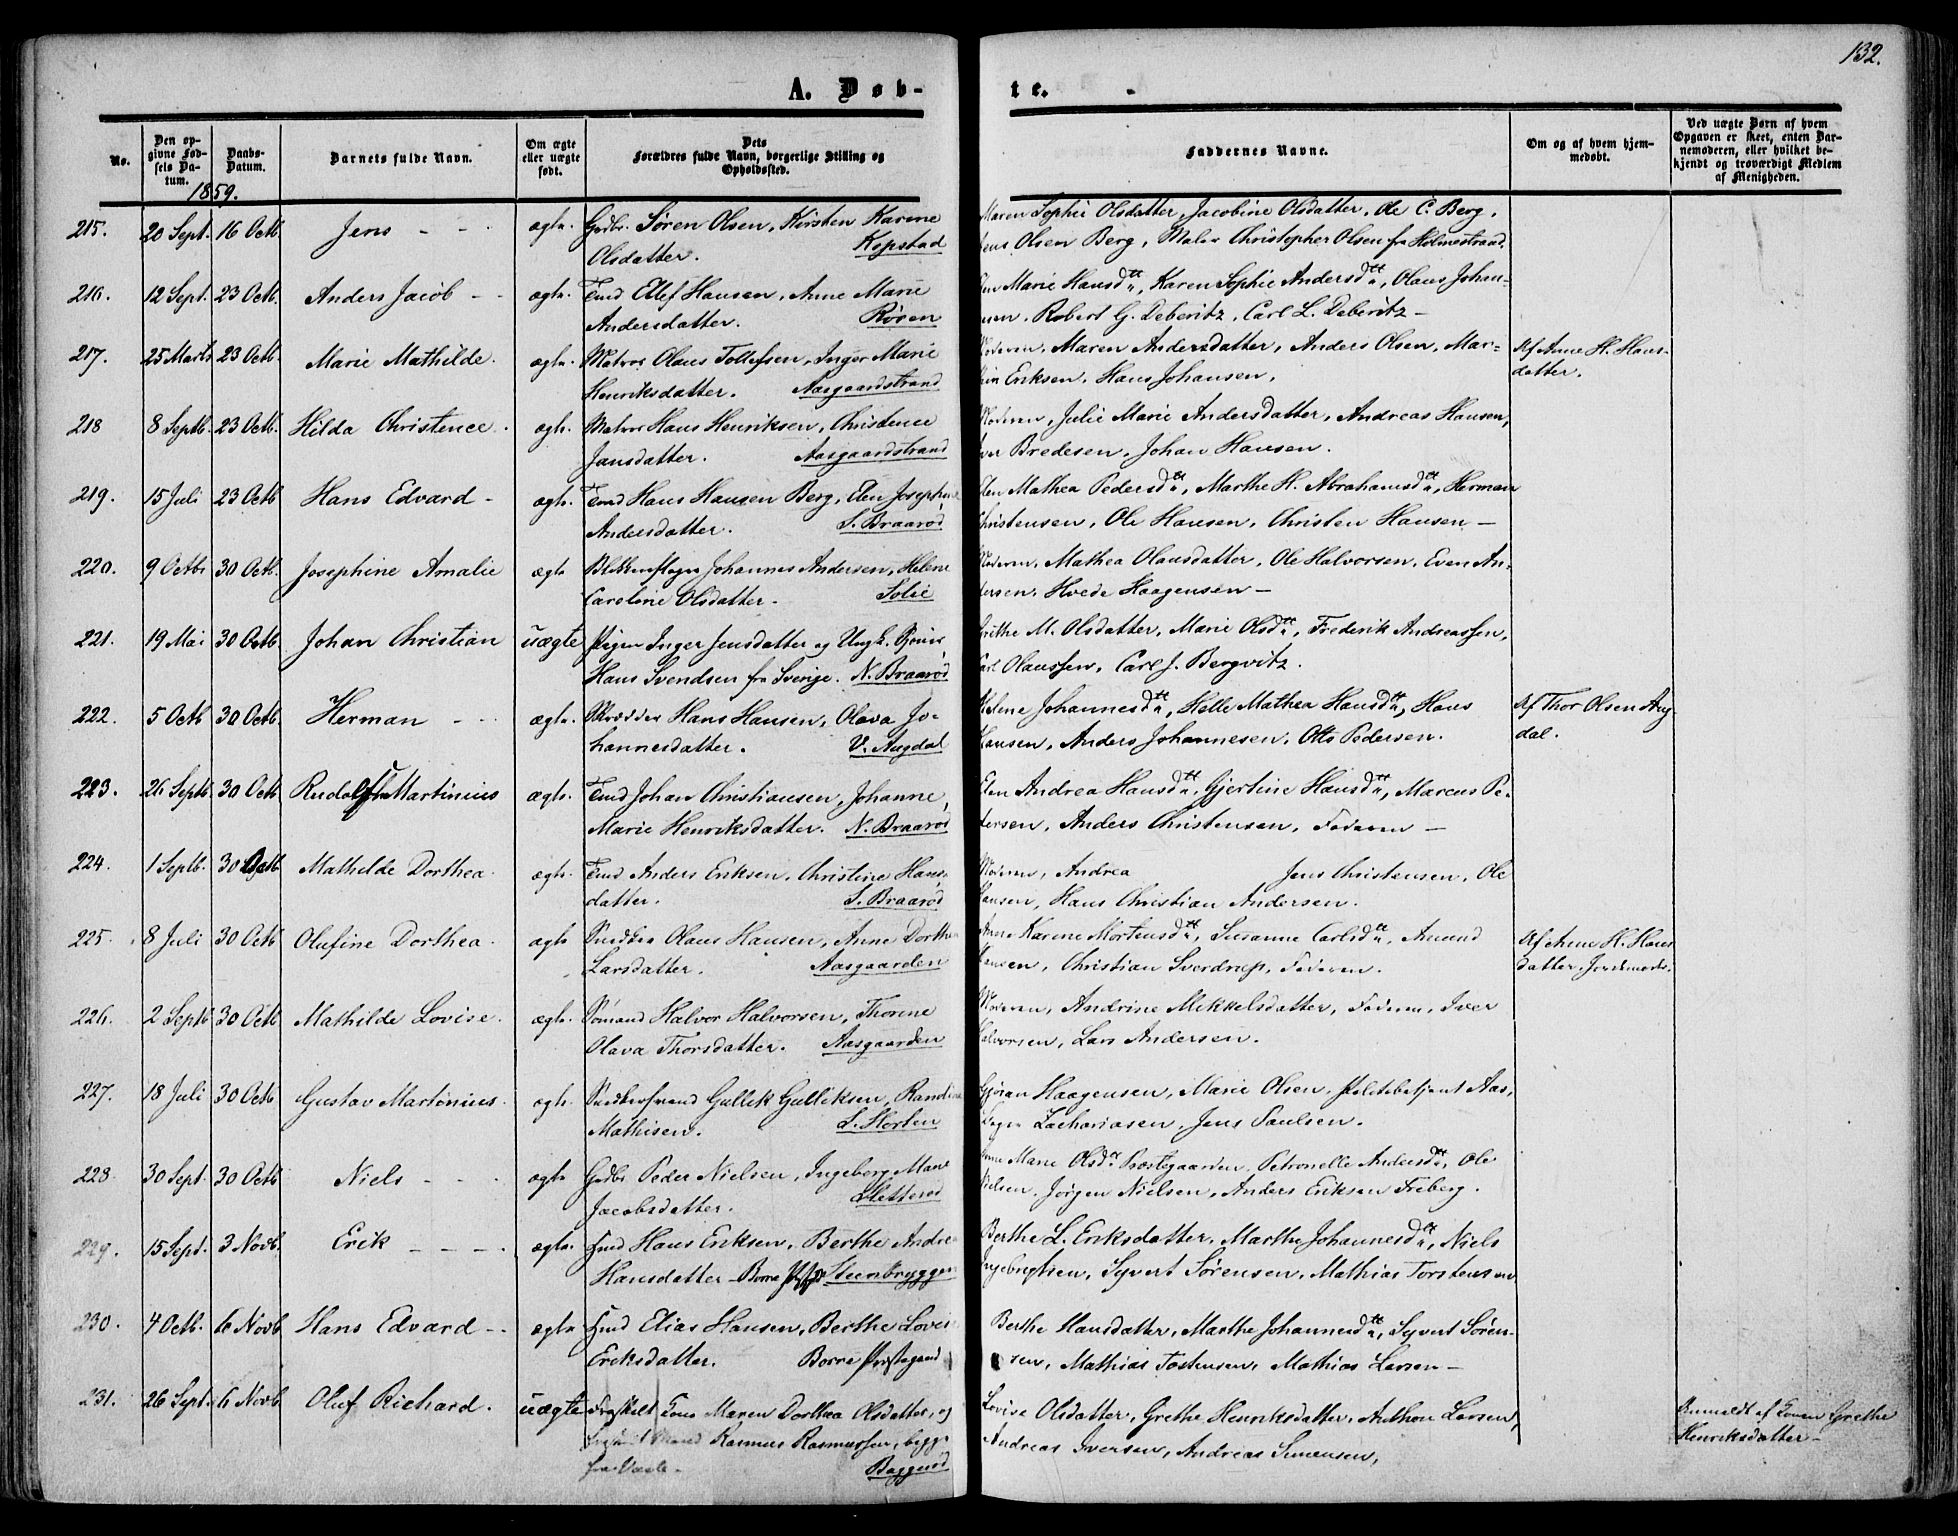 132.
A. Døb-
te.
No.
Den op-
givne Fød-
sels Da-
tum.
Daabs-
Datum.
Barnets fulde Navn.
Om ægte
eller uægte
født.
Dets
Forældres fulde Navn, borgerlige Stilling og
Opholdssted.
Faddernes Navne.
Om og af hvem hjem-
medøbt.
Ved uægte Børn af hvem
Opgaven er skeet, enten Bar-
nemoderen, eller hvilket be-
kjendt og troværdigt Medlem
af Menigheden.
1859.
215. 20 Sept. 16 Octb Jens - - ægte. Gdbr. Søren Olsen, Kirsten Karine
Olsdatter. Kopstad
Maren Sophie Olsdatter, Jacobine Olsdatter, Ole C. Berg,
Jens Olsen Berg, Maler Christopher Olsen fra Holmestrand.
216. 12 Sept. 23 Octb. Anders Jacob - - ægte. Tmd Ellef Hansen, Anne Marie
Andersdatter. Røren
Marie Hansdtt, Karen Sophie Andersdtt, Olaus Johan-
sen, Robert G. Deberitz, Carl L. Deberitz -
217. 25 Marts 23 Octb. Marie Mathilde. ægte. Matros Olaus Tollefsen, Inger Marie
Henriksdatter. Aasgaardstrand
Moderen, Maren Andersdatter, Anders Olsen, Mar-
Eriksen, Hans Johansen.
Af Anne H. Hans-
datter.
218 8 Septb. 23 Octb. Hilda Christence. ægte. Matros Hans Henriksen, Christence
Jansdatter. Aasgaardstrand
Moderen, Julie Marie Andersdatter, Andreas Hansen,
Iver Bredesen, Johan Hansen.
219. 15 Juli 23 Octb Hans Edvard - ægte. Tmd Hans Hansen Berg, Elen Josephine
Andersdatter. S. Braarød
Elen Mathea Pedersdtt, Marthe H. Abrahamsdtt, Herman
Christensen, Ole Hansen, Christen Hansen -
220. 9 Octbr 30 Octb. Josephine Amalie ægte Blikkenslager Johannes Andersen, Helene
Caroline Olsdatter. Solie
Moderen, Mathea Olausdatter, Ole Halvorsen, Even An-
dersen, Hvede Haagensen -
221. 19 Mai 30 Octb. Johan Christian uægte Pigen Inger Jensdatter og Ungk.
Hans Svendsen fra Sverige. N. Braarød
Grethe M. Olsdatter, Marie Olsdtt, Frederik Andreassen,
Carl Olaussen, Carl J. Bergvitz.
222. 5 Octb 30 Octb. Herman - - ægte. Skrædder Hans Hansen, Olava Jo-
hannesdatter. V. Augdal
Helene Johannesdtt, Helle Mathea Hansdtt, Hans
Hansen, Anders Johannesen, Otto Pedersen.
Af Thor Olsen Aug-
dal.
223. 26 Septb 30 Octb Rudolf Martinius ægte. Tmd Johan Christiansen, Johanne
Marie Henriksdatter. N. Braarød
Elen Andrea Hansdtt, Gjertine Hansdtt, Marcus Pe-
dersen, Anders Christensen, Faderen -
224. 1 Septb. 30 Octb Mathilde Dorthea. ægte. Tmd Anders Eriksen, Christine Hans-
datter. S. Braarød
Moderen, Andrea Jens Christensen, Ole
Hansen, Hans Christian Andersen.
225. 8 Juli 30 Octb Olufine Dorthea. ægte Snedker Olaus Hansen, Anne Dorthea
Larsdatter. Aasgaarden
Karine Mortensdtt, Susanne Carlsdtt, Amund
Hansen, Christian Sverdrup, Faderen.
Af Anne H. Hans
datter, Jordemoder.
226. 2 Septb 30 Octb Mathilde Lovise. ægte. Sømand Halvor Halvorsen, Thorine
Olava Thorsdatter. Aasgaarden
Moderen, Andrine Mikkelsdatter, Faderen, Iver
Halvorsen, Lars Andersen.
227. 18 Juli 30 Octb Gustav Martinius. ægte. Snedkersvend Gullik Gulliksen, Randine
Mathisen. L. Horten
Gjøran Haagensen, Marie Olsen, Politibetjent Aas,
Zachariasen, Jens Paulsen.
228. 30 Sept. 30 Octb Niels - - ægte Gdbr Peder Nielsen, Ingeborg Marie
Jacobsdatter. Sletterød
Marie Olsdtt Præstegaarden, Petronelle Andersdtt, Ole
Nielsen, Jørgen Nielsen, Anders Eriksen Freberg.
229. 15 Sept. 3 Novb. Erik - - - - ægte. Hmd Hans Eriksen, Berthe Andrea
Hansdatter - Borre Steenbryggen
Berthe L. Eriksdatter, Marthe Johannesdtt, Niels
Ingebrigtsen, Syvert Sørensen, Mathias Torstensen
230. 4 Octb. 6 Novb Hans Edvard - - ægte Hmd Elias Hansen, Berthe Lovise
Eriksdatter. Borre Præstegaard
Berthe Hansdatter, Marthe Johannesdtt, Syvert Søren-
sen, Mathias Tostensen, Mathias Larsen -
231. 26 Sept. 6 Novb Oluf Richard. uægte Fraskilt Kone Maren Dorthea Olsdatter, og
Fraskilt Mand Rasmus Rasmussen, begge
fra Vaale. Baggerød
Lovise Olsdatter, Grethe Henriksdatter, Anthon Larsen,
Andreas Iversen, Andreas Simensen,
Anmeldt af Konen Grethe
Henriksdatter -